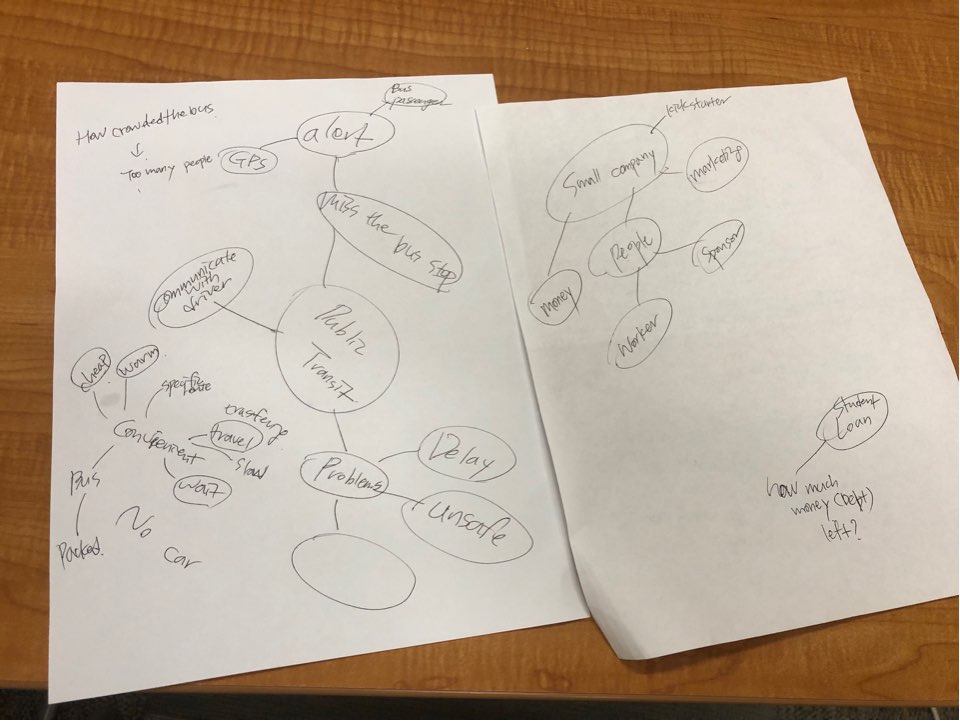 How crowded the bus
Too many people
Bus
passenger
alert
GPS
Miss the bus stop
communicate
with
driver
Public
Transit
cheap
warm
specific
Convenient
travel
slow
wait
Bus
Packed
No
car
Problems
Delay
unsafe
kickstarter
Small company
marketing
People
Sponsor
money
Worker
Student
Loan
how much
money (Dept)
left?